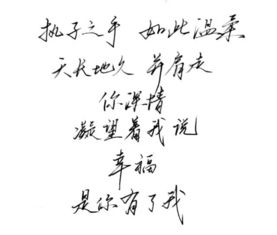 执子之手 如此温柔
天长地久 并肩走
你深情
凝望着我说
幸福
是你有了我